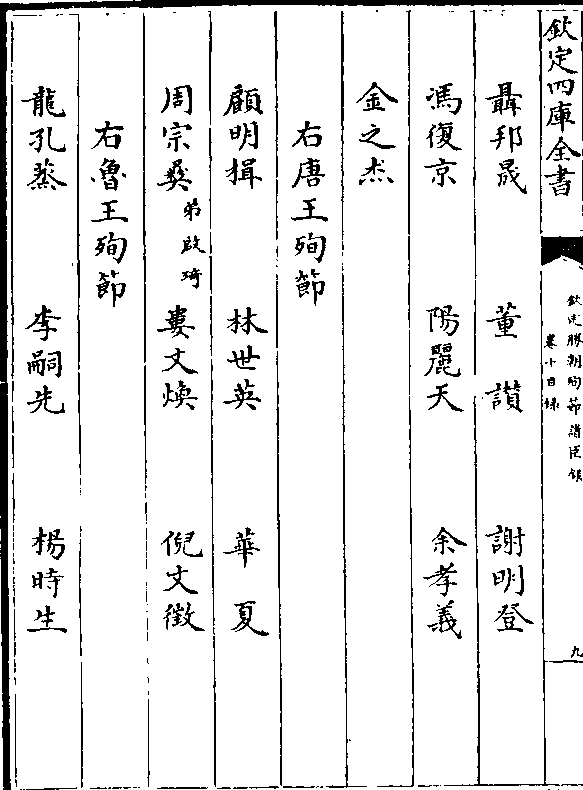 欽定四庫全書
欽定勝朝殉節諸臣錄
卷十目錄
九
聶邦晟　董讃　謝明登
馮復京　陽麗天　余孝義
金之杰
右唐王殉節
顧明揖　林世英　華夏
周宗彞弟啟琦　婁文煥　倪文徵
右魯王殉節
龍孔蒸　李嗣先　楊時生